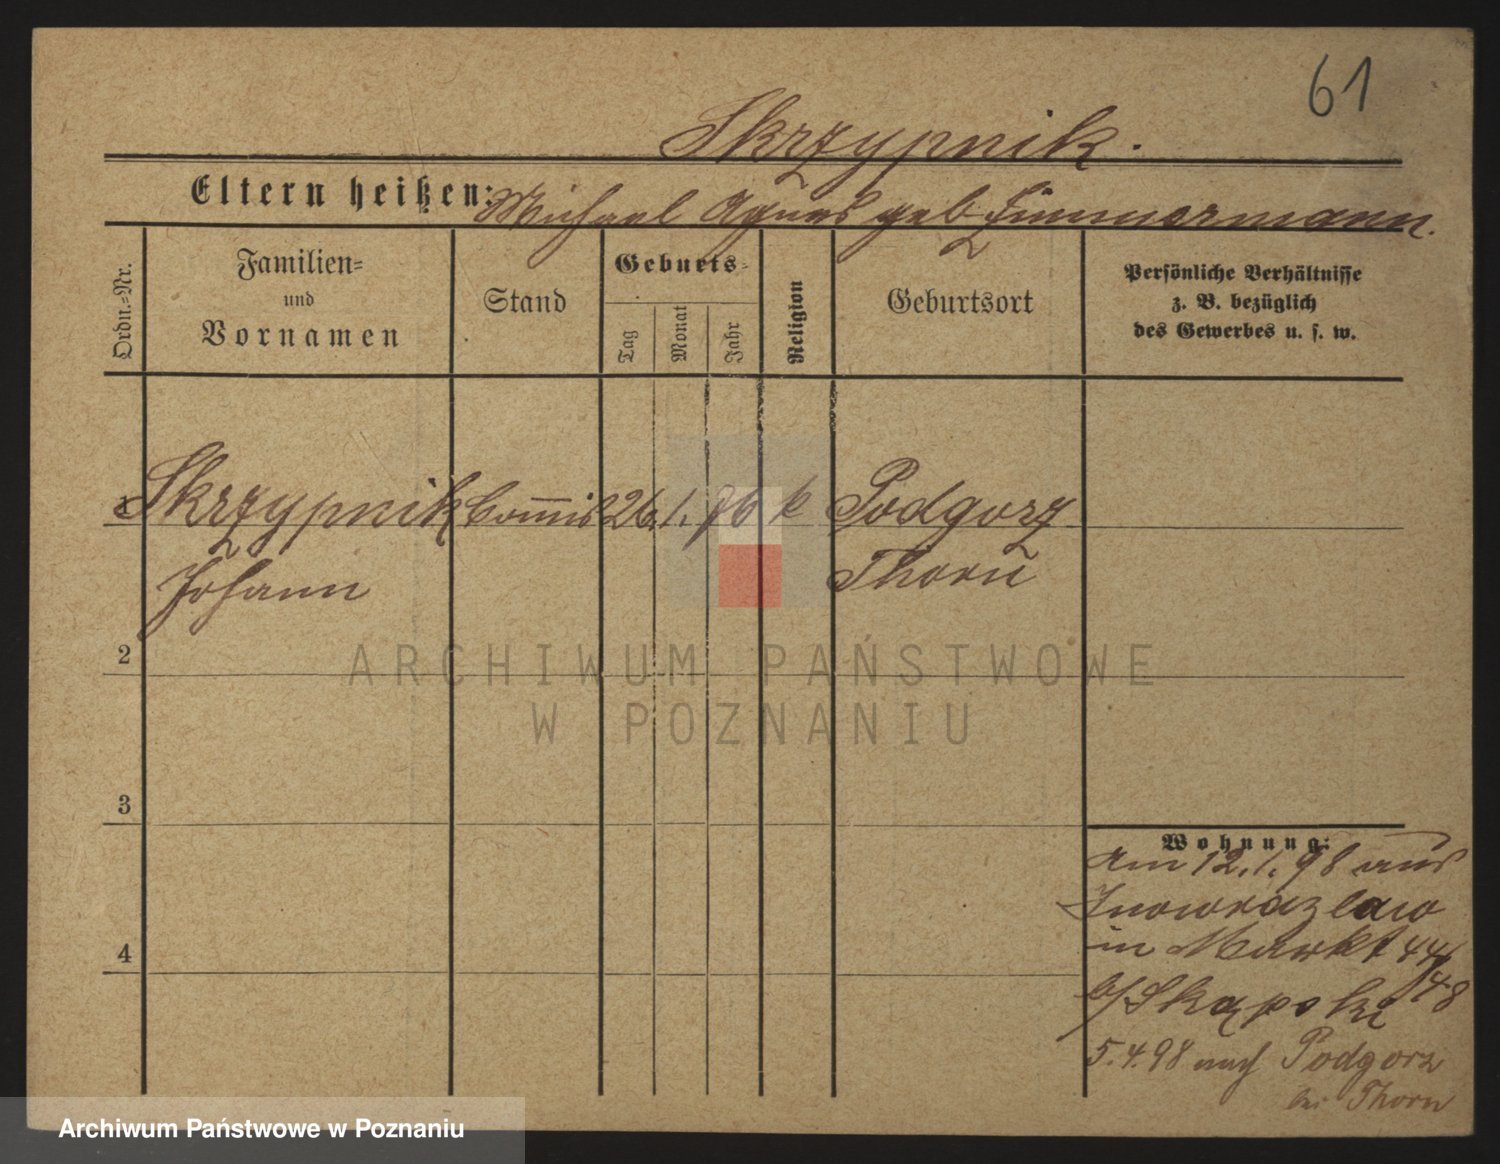 61
Skrzypnik.
Eltern heißen: Michael Agnes geb Zimmermann.
Ordn.=Nr.
Familien=
und
Vornamen
Stand
Geburts=
Tag
Monat
Jahr
Religion
Geburtsort
Persönliche Verhältnisse
z. B. bezüglich
des Gewerbes u. s. w.
1 Skrzypnik Commis 26. 1. 76 k Podgorz
Johann Thorn
2
3
4
Wohnung:
am 12.1.98 aus
Inowrazlaw
in Markt 44/
48
b/ Skąpski
5.4.98 nach Podgorz
bei Thorn
ARCHIWUM PAŃSTWOWE
W POZNANIU
Archiwum Państwowe w Poznaniu